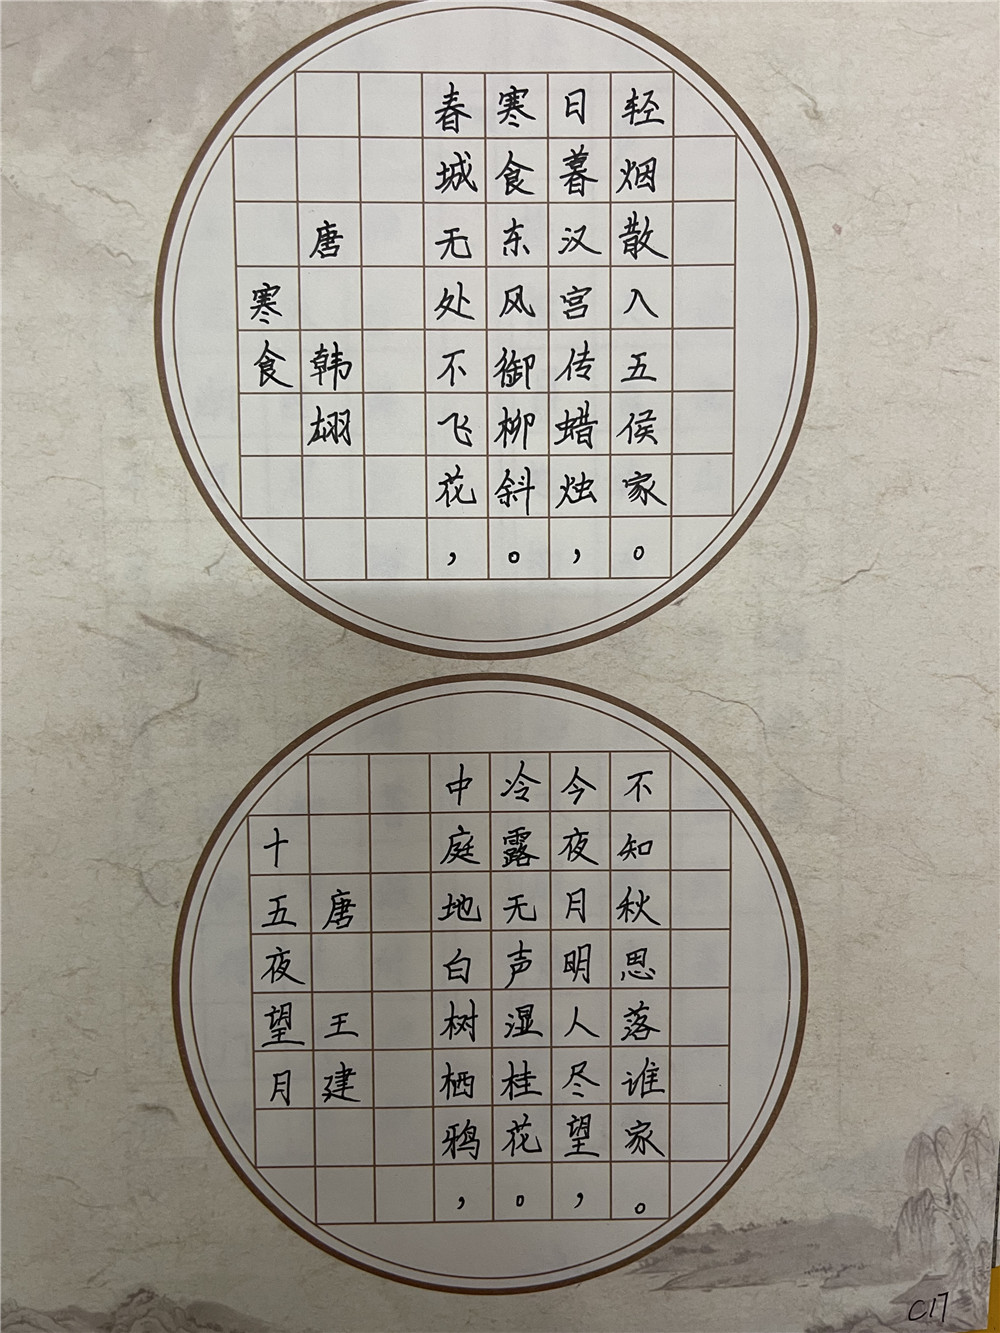 寒食
唐 韩翃
春城无处不飞花，
寒食东风御柳斜。
日暮汉宫传蜡烛，
轻烟散入五侯家。
十五夜望月
唐 王建
中庭地白树栖鸦，
冷露无声湿桂花。
今夜月明人尽望，
不知秋思落谁家。
C17